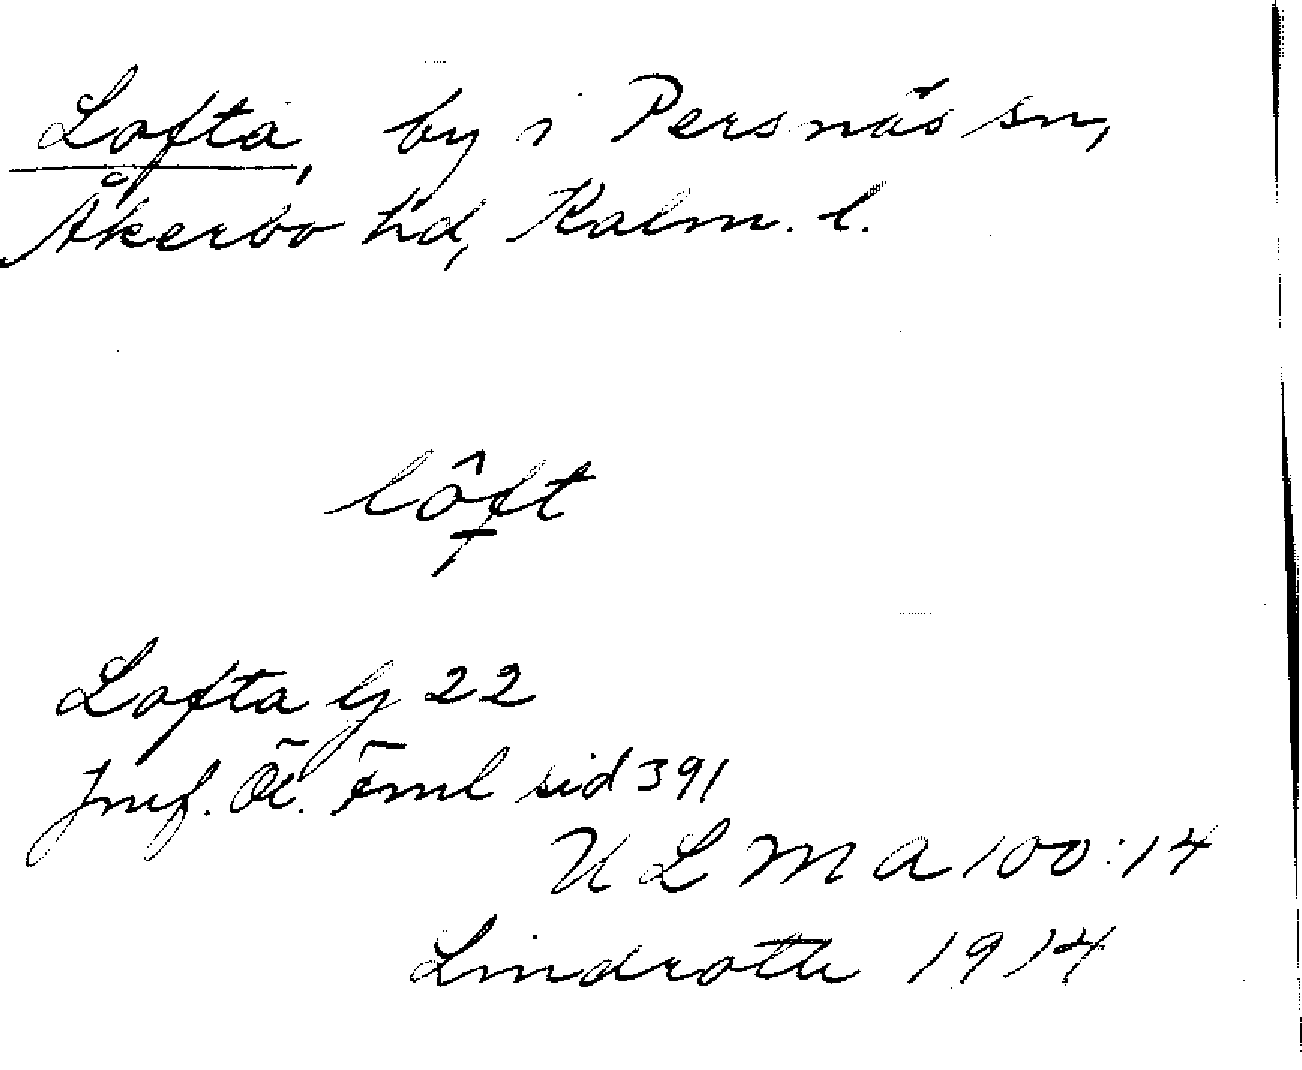 Lofta, by i Persnäs sn,
Åkerbo hd, Kalm. l.
lôft
Lofta by 22
Jmf. Öl. Fml sid 391
ULMA 100:14
Lindroth 1914